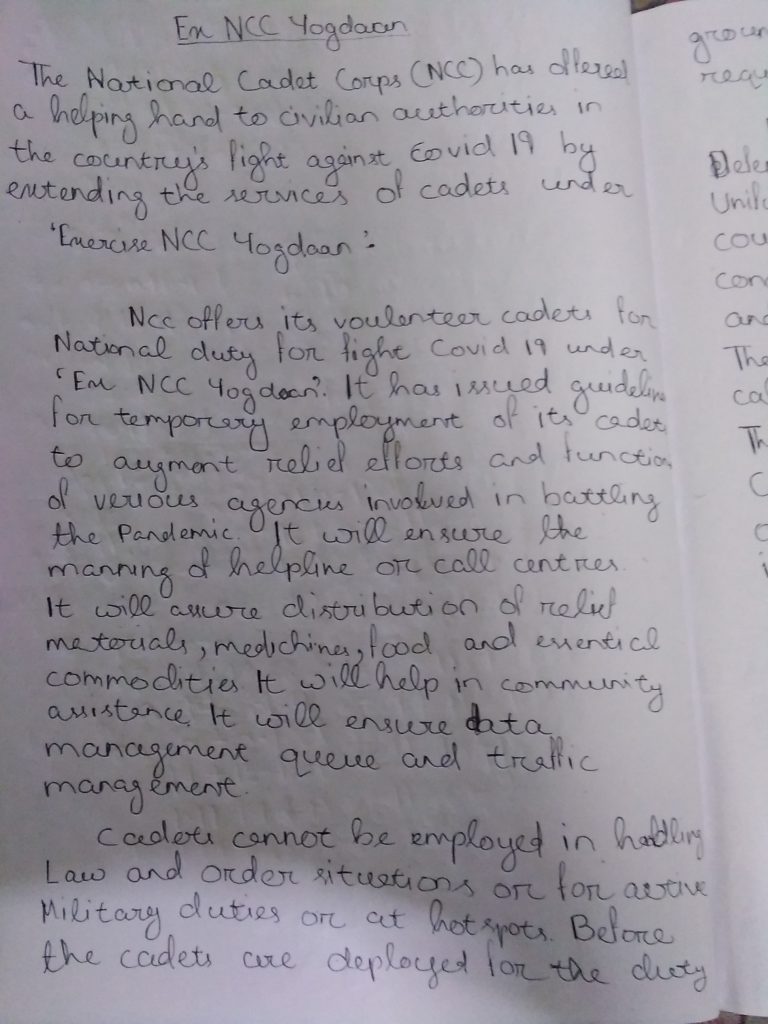 Ex NCC Yogdaan
The National Cadet Corps (NCC) has offered
a helping hand to civilian authorities in
the country's fight against Covid 19 by
extending the services of cadets under
'Exercise NCC Yogdaan'.
Ncc offers its voulenteer cadets for
National duty for fight Covid 19 under
'Ex NCC Yogdaan'. It has issued guideline
for temporery employment of its cadet
to augment relief efforts and function
of verious agencies involved in battling
the Pandemic. It will ensure the
manning of helpline or call centres.
It will assure distribution of relief
materials, medichines, food and essentical
commodities. It will help in community
assistance. It will ensure data
management queue and traffic
management.
Cadets cannot be employed in handling
Law and order situations or for active
Military duties or at hotspots. Before
the cadets are deployed for the duty
groun
requ
Defe
Unifo
cou
con
and
The
ca
Th
C